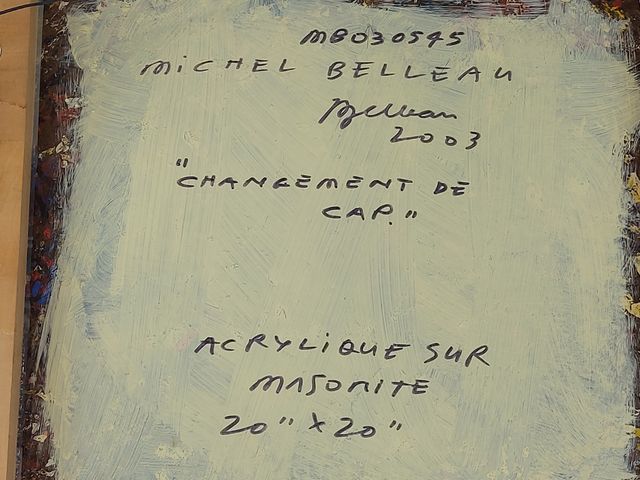 MB030545
MICHEL BELLEAU
Belleau
2003
"CHANGEMENT DE
CAP."
ACRYLIQUE SUR
MASONITE
20" X 20"